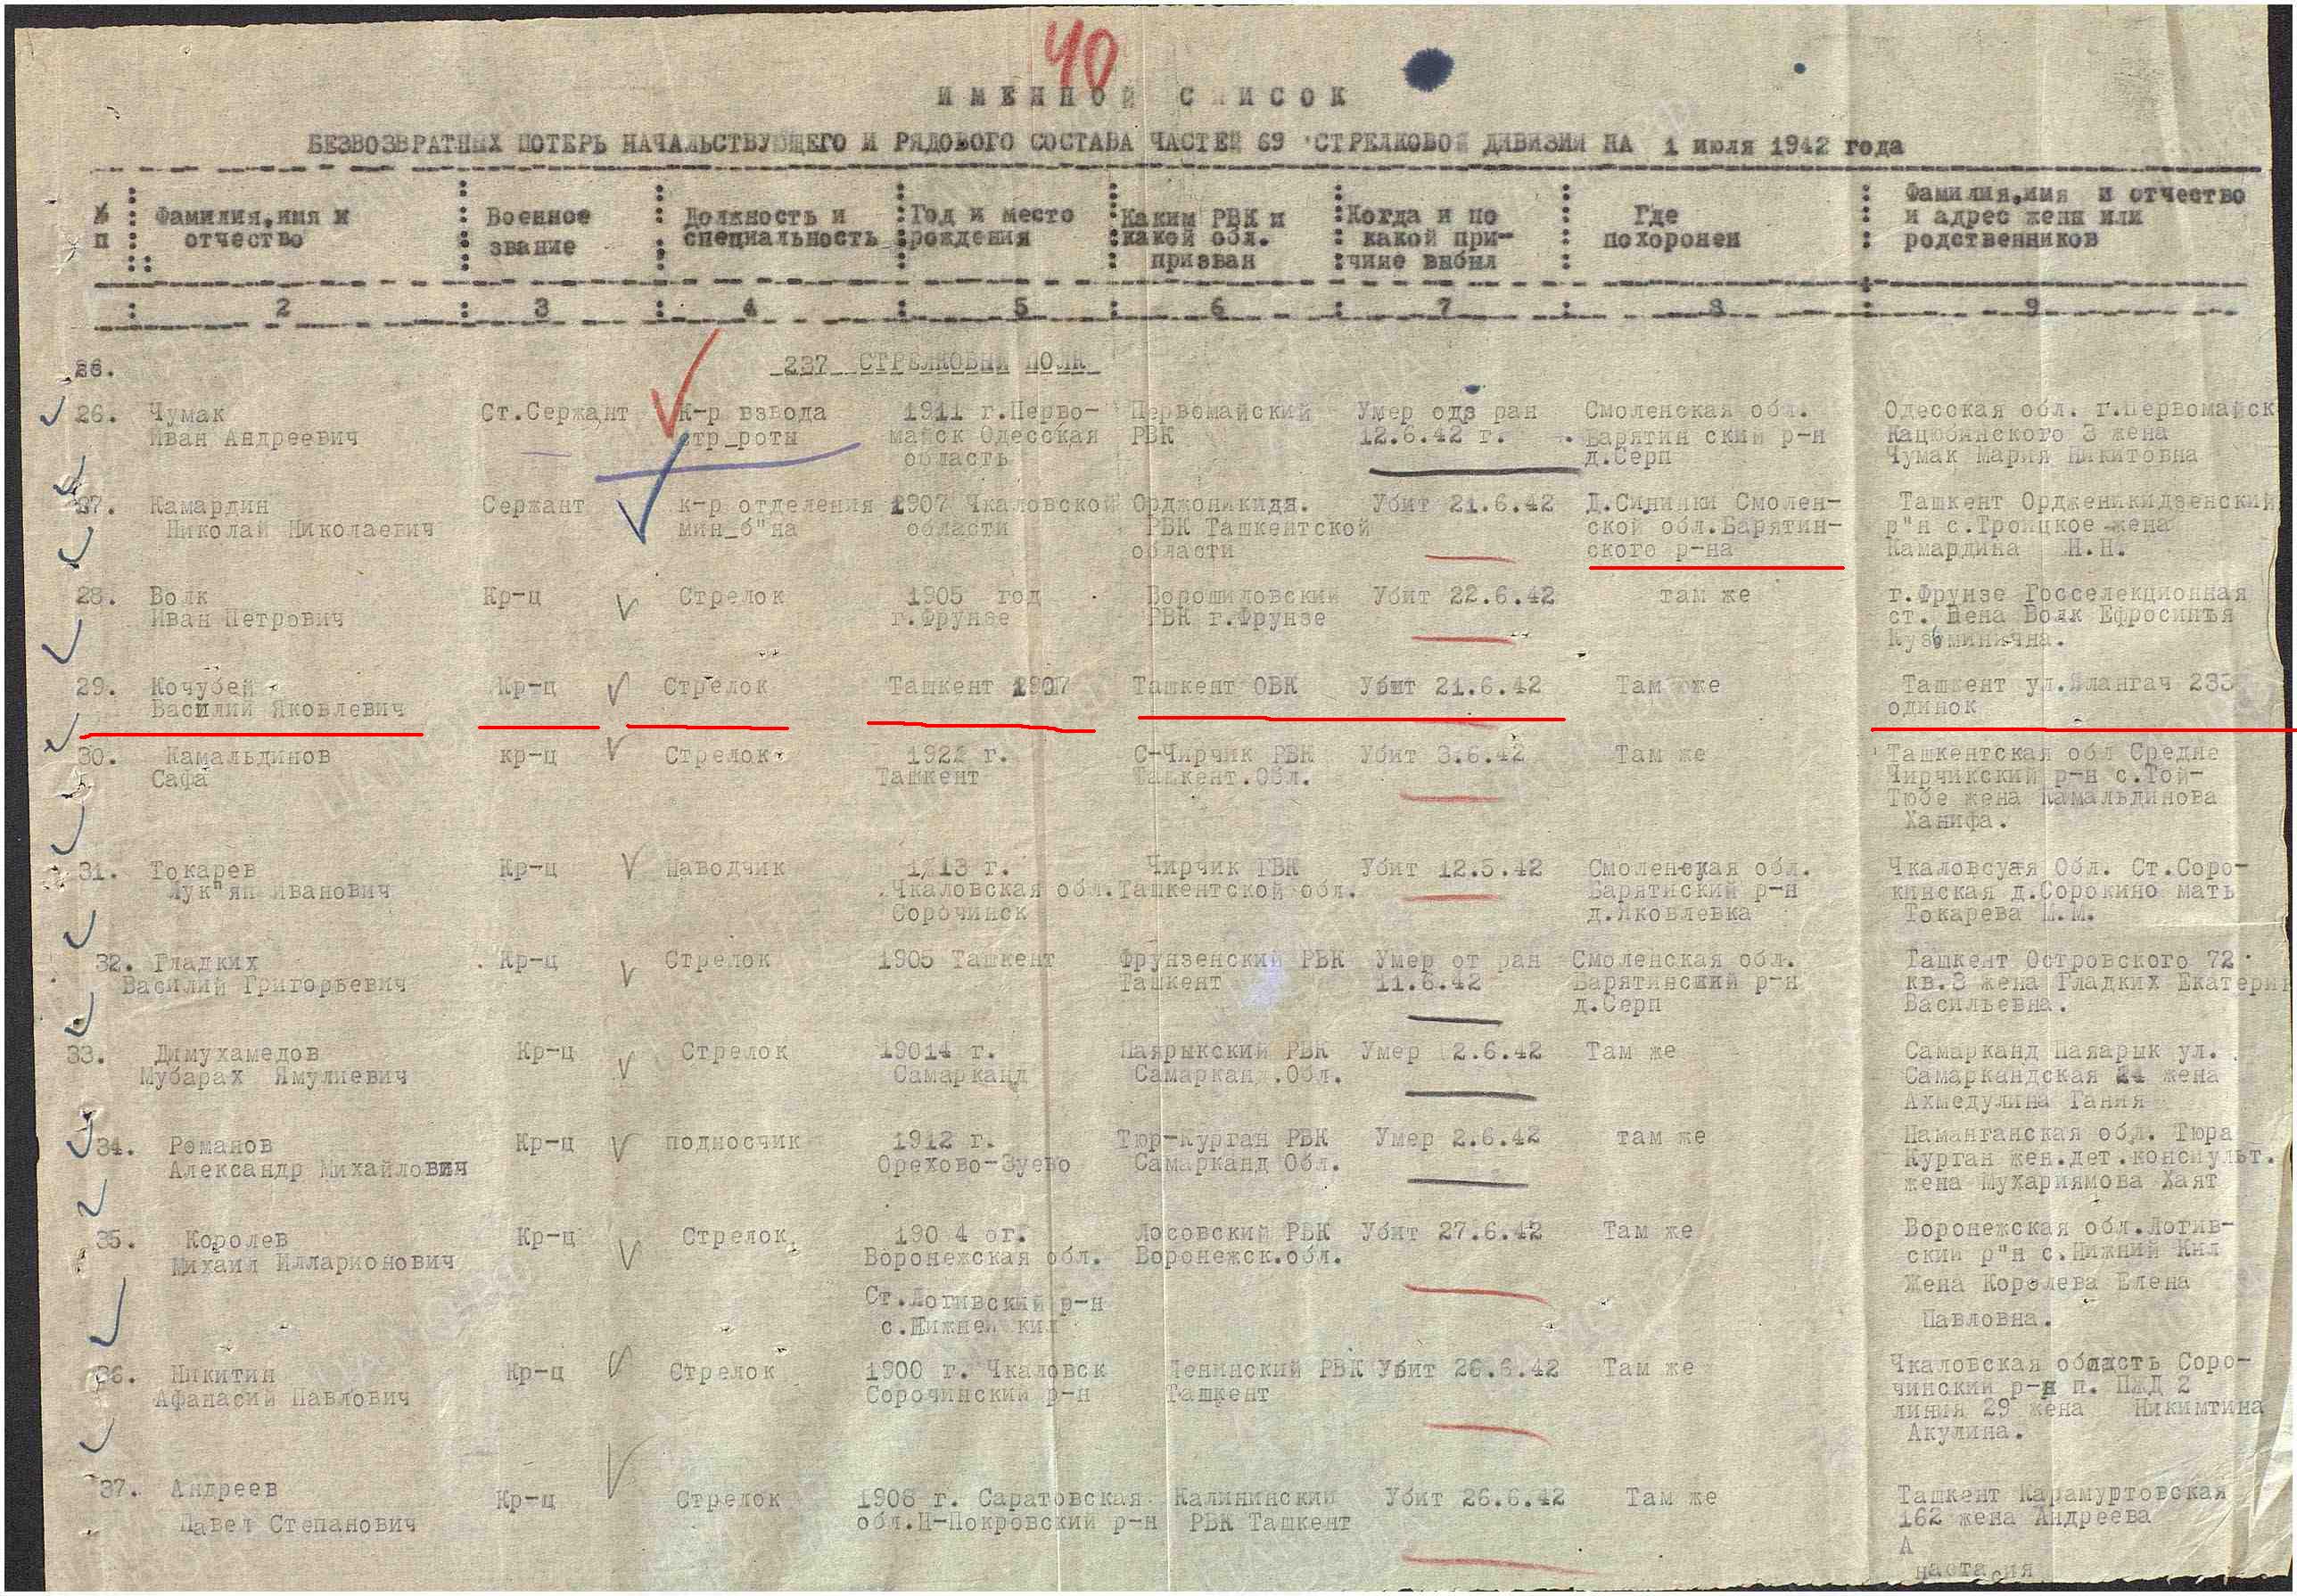 40
ИМЕННОЙ СПИСОК
БЕЗВОЗВРАТНЫХ ПОТЕРЬ НАЧАЛЬСТВУЮЩЕГО И РЯДОВОГО СОСТАВА ЧАСТЕЙ 69 СТРЕЛКОВОЙ ДИВИЗИИ НА 1 июля 1942 года
№ п
Фамилия,имя и отчество
Военное звание
Должность и специальность
Год и место рождения
Каким РВК и какой обл. призван
Когда и по какой при-чине выбыл
Где похоронен
Фамилия,имя и отчество и адрес жены или родственников
2 3 4 5 6 7 8 9
237 СТРЕЛКОВЫЙ ПОЛК
26. Чумак Ст.Сержант К-р взвода 1911 г.Перво- Первомайский Умер одз ран Смоленская обл. Одесская обл. г.Первомайск
Иван Андреевич стр_роты майск Одесская РВК 12.6.42 г. Барятин ский р-н Кацюбинского 3 жена
область д.Серп Чумак Мария Никитовна
27. Камардин Сержант к-р отделения 1907 Чкаловской Орджоникидз. Убит 21.6.42 Д.Сининки Смолен- Ташкент Ордженикидзенский
Николай Николаевич мин_б"на области РВК Ташкентской ской обл.Барятин- р"н с.Троицкое жена
области ского р-на Камардина Н.Н.
28. Волк Кр-ц Стрелок 1905 год Ворошиловский Убит 22.6.42 там же г.Фрунзе Госселекционная
Иван Петрович г.Фрунзе РВК г.Фрунзе ст. Жена Волк Ефросинья
Кузьминична.
29. Кочубей Кр-ц Стрелок Ташкент 1907 Ташкент ОВК Убит 21.6.42 Там же Ташкент ул.Ялангач 233
Василий Яковлевич одинок
30. Камальдинов кр-ц Стрелок 1922 г. С-Чирчик РВК Убит 3.6.42 Там же Ташкентская обл Средне
Сафа Ташкент Ташкент.Обл. Чирчикский р-н с.Той-
Тюбе жена Камальдинова
Ханифа.
31. Токарев Кр-ц Наводчик 1913 г. Чирчик ГВК Убит 12.5.42 Смоленская обл. Чкаловсуая Обл. Ст.Соро-
Лук"ян Иванович Чкаловская обл. Ташкентской обл. Барятиский р-н кинская д.Сорокино мать
Сорочинск д.Яковлевка Токарева М.М.
32. Гладких Кр-ц Стрелок 1905 Ташкент Фрунзенский РВК Умер от ран Смоленская обл. Ташкент Островского 72
Василий Григорьевич Ташкент 11.6.42 Барятинский р-н кв.3 жена Гладких Екатерин
д.Серп Васильевна.
33. Димухамедов Кр-ц Стрелок 19014 г. Паярыкский РВК Умер 2.6.42 Там же Самарканд Паяарык ул.
Мубарах Ямулиевич Самарканд Самарканд.Обл. Самаркандская 24 жена
Ахмедулина Гания
34. Романов Кр-ц подносчик 1912 г. Тюр-Курган РВК Умер 2.6.42 там же Наманганская обл. Тюра
Александр Михайлович Орехово-Зуево Самарканд Обл. Курган жен.дет.консиульт.
жена Мухариямова Хаят
35. Королев Кр-ц Стрелок 190 4 ог. Лосовский РВК Убит 27.6.42 Там же Воронежская обл.Логив-
Михаил Илларионович Воронежская обл. Воронежск.обл. ский р"н с.Нижний Кил
Ст.Логивский р-н Жена Королева Елена
с.Нижней кил Павловна.
36. Никитин Кр-ц Стрелок 1900 г. Чкаловск Ленинский РВК Убит 26.6.42 Там же Чкаловская область Соро-
Афанасий Павлович Сорочинский р-н Ташкент чинский р-н п. ПЖД 2
линия 29 жена Никимтина
Акулина.
37. Андреев Кр-ц Стрелок 1906 г. Саратовская Калининский Убит 26.6.42 Там же Ташкент Карамуртовская
Павел Степанович обл.Н-Покровский р-н РВК Ташкент 162 жена Андреева
А
настасия